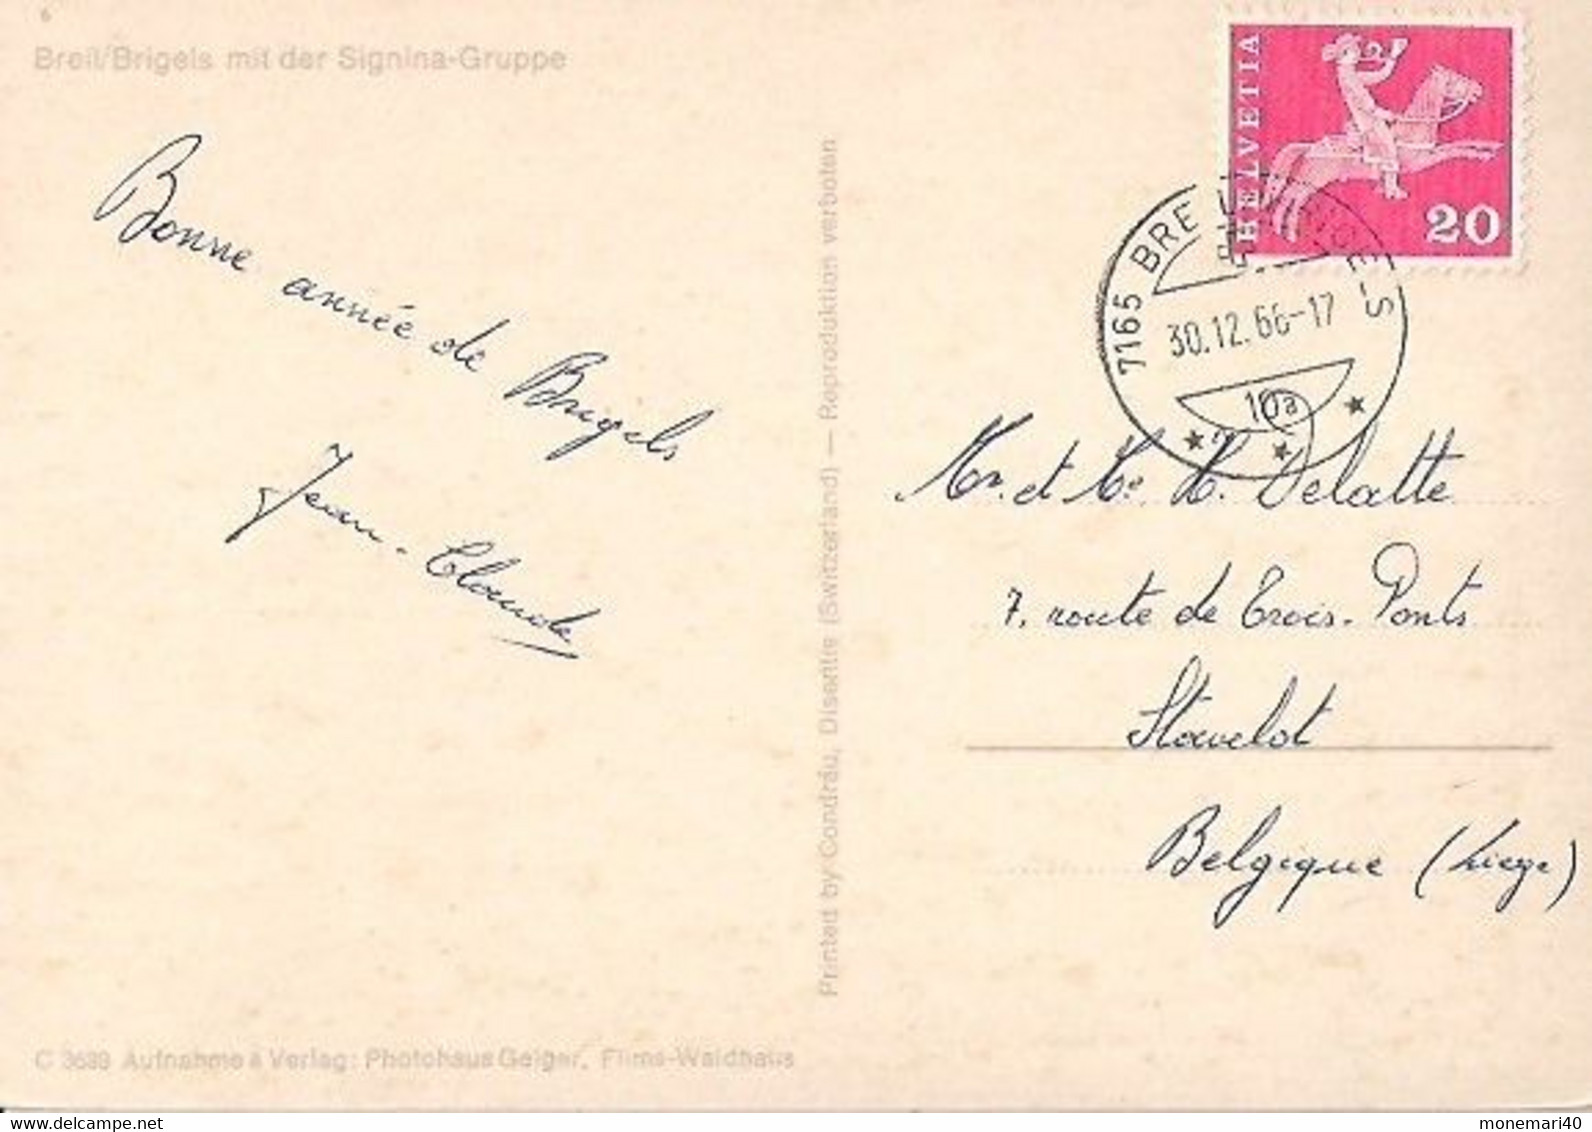 6
Breil/Brigels mit der Signina-Gruppe
HELVETIA
20
7165 BREIL/BRIGELS
30.12.66-17
10a
Bonne année de Brigels
Jean-Claude
Mr. et Me H. Delatte
7, route de Trois-Ponts
Stavelot
Belgique (Liege)
Printed by Condrau, Disentis (Switzerland) — Reproduktion verboten
C 3689 Aufnahme & Verlag: Photohaus Geiger, Flims-Waldhaus
monemari40